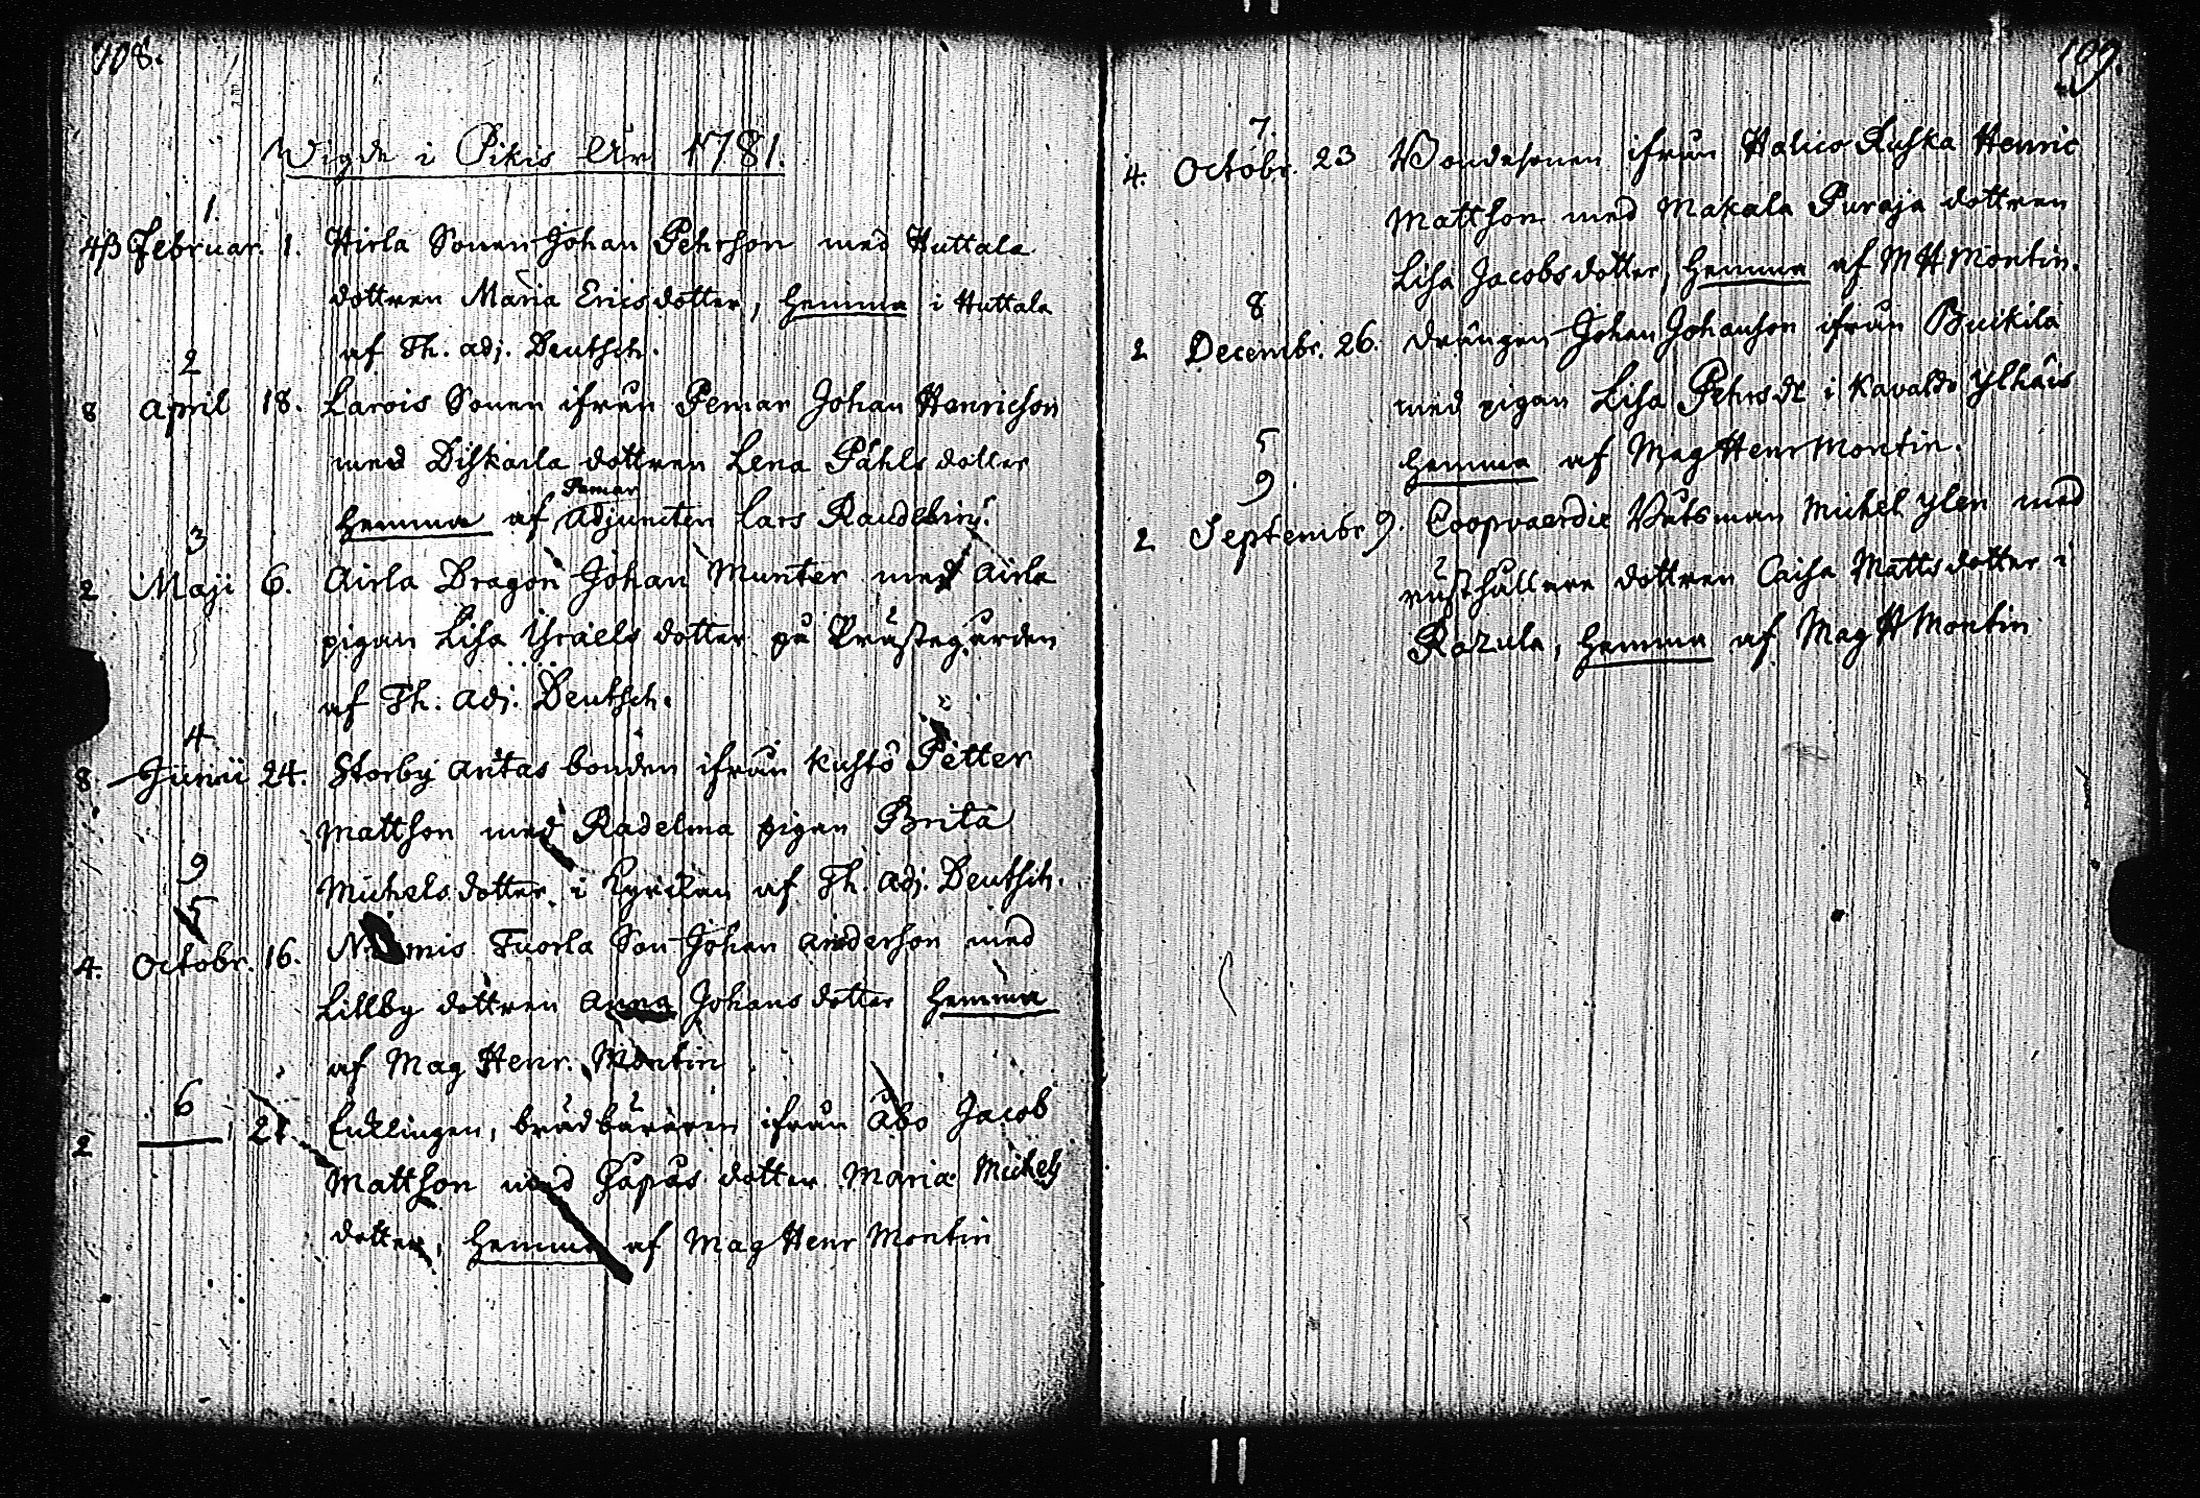 108.
Wigde i Pikis År 1781.
1.
4 β Februar. 1. Hirla Sonen Johan Pehrson med Huttala
dottren Maria Ericsdotter, hemma i Huttala
af Th. adj. Deutsch.
2
8 April 18. Larois Sonen ifrån Pemar Johan Henricson
med Diskarla dottren Lena Påhls dotter
Pemar
hemma af Adjuncten Lars
3
2 Maji 6. Airla Dragon Johan Munter med Airla
pigan Lisa Israels dotter på Prästegården
af Th. Adj. Deutsch.
4
8 Junii 24. Storby Antas bonden ifrån Kustö Petter
Mattson med Radelma pigan Brita
Michels dotter i af Th. Adj. Deutsch.
9
5
4. Octobr. 16. Tuorla Son Johan Anderson med
Lillby dottren Anna Johans dotter hemma
af Mag Henr. Montin
6
2 — 21. Enklingen, ifrån Åbo Jacob
Mattson med dotter Maria Michels
dotter, hemma af Mag Henr Montin
109.
7.
4. Octobr. 23 Bondesonen ifrån Halico Ruska Henric
Mattson med Makala Puraja dottren
Lisa Jacobsdotter, hemma af M H Montin.
8
2 Decembr. 26. drängen Johan Johanson ifrån
med pigan Lisa Pehrs dr i Kavaldo Ylhäis
hemma af Mag Henr Montin.
5
9
2 Septembr 9. Coopvaerdie Båtsman Michel Ylen med
rusthållare dottren Caisa Matts dotter i
Rozula, hemma af Mag H Montin